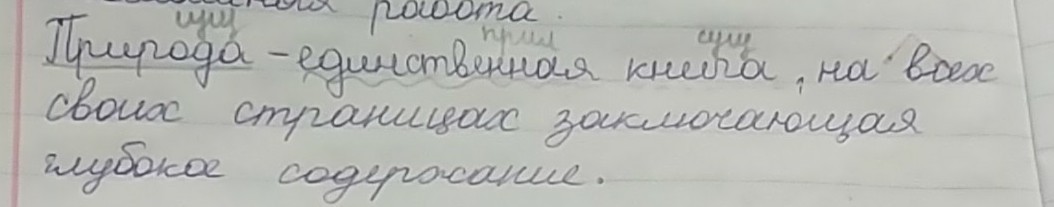 работа.
сущ прил сущ
Природа - единственная книга, на всех
своих страницах заключающая
глубокое содержание.